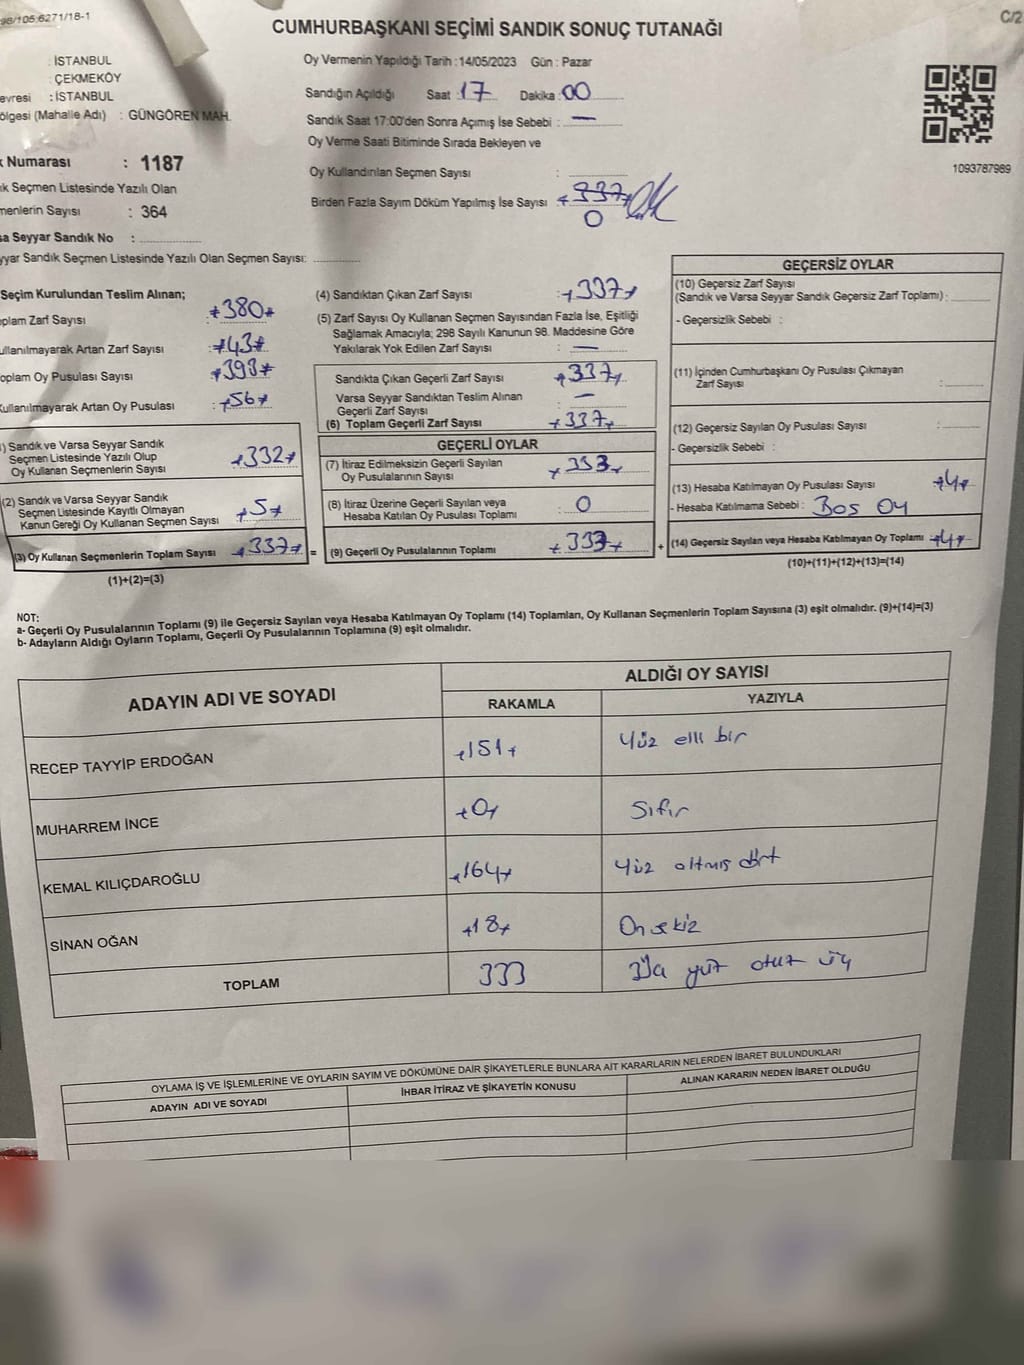 98/105:6271/18-1
C/2
CUMHURBAŞKANI SEÇİMİ SANDIK SONUÇ TUTANAĞI
: İSTANBUL
: ÇEKMEKÖY
evresi : İSTANBUL
ölgesi (Mahalle Adı) : GÜNGÖREN MAH.
k Numarası : 1187
ık Seçmen Listesinde Yazılı Olan
menlerin Sayısı : 364
sa Seyyar Sandık No :
yyar Sandık Seçmen Listesinde Yazılı Olan Seçmen Sayısı:
Oy Vermenin Yapıldığı Tarih : 14/05/2023 Gün : Pazar
Sandığın Açıldığı Saat : 17 Dakika : 00
Sandık Saat 17:00'den Sonra Açımış İse Sebebi : —
Oy Verme Saati Bitiminde Sırada Bekleyen ve
Oy Kullandırılan Seçmen Sayısı :
Birden Fazla Sayım Döküm Yapılmış İse Sayısı : 337
0
1093787989
Seçim Kurulundan Teslim Alınan;
plam Zarf Sayısı : +380+
ullanılmayarak Artan Zarf Sayısı : +43+
oplam Oy Pusulası Sayısı : +393+
Kullanılmayarak Artan Oy Pusulası : +56+
) Sandık ve Varsa Seyyar Sandık
Seçmen Listesinde Yazılı Olup
Oy Kullanan Seçmenlerin Sayısı +332+
(2) Sandık ve Varsa Seyyar Sandık
Seçmen Listesinde Kayıtlı Olmayan
Kanun Gereği Oy Kullanan Seçmen Sayısı +5+
(3) Oy Kullanan Seçmenlerin Toplam Sayısı +337+ =
(1)+(2)=(3)
(4) Sandıktan Çıkan Zarf Sayısı : +337+
(5) Zarf Sayısı Oy Kullanan Seçmen Sayısından Fazla İse, Eşitliği
Sağlamak Amacıyla; 298 Sayılı Kanunun 98. Maddesine Göre
Yakılarak Yok Edilen Zarf Sayısı : —
Sandıkta Çıkan Geçerli Zarf Sayısı +337+
Varsa Seyyar Sandıktan Teslim Alınan
Geçerli Zarf Sayısı : —
(6) Toplam Geçerli Zarf Sayısı +337+
GEÇERLİ OYLAR
(7) İtiraz Edilmeksizin Geçerli Sayılan
Oy Pusulalarının Sayısı +333+
(8) İtiraz Üzerine Geçerli Sayılan veya
Hesaba Katılan Oy Pusulası Toplamı : 0
(9) Geçerli Oy Pusulalarının Toplamı +333+ +
GEÇERSİZ OYLAR
(10) Geçersiz Zarf Sayısı
(Sandık ve Varsa Seyyar Sandık Geçersiz Zarf Toplamı) :
- Geçersizlik Sebebi :
(11) İçinden Cumhurbaşkanı Oy Pusulası Çıkmayan
Zarf Sayısı :
(12) Geçersiz Sayılan Oy Pusulası Sayısı :
- Geçersizlik Sebebi :
(13) Hesaba Katılmayan Oy Pusulası Sayısı +4+
- Hesaba Katılmama Sebebi : Boş Oy
(14) Geçersiz Sayılan veya Hesaba Katılmayan Oy Toplamı +4+
(10)+(11)+(12)+(13)=(14)
NOT:
a- Geçerli Oy Pusulalarının Toplamı (9) ile Geçersiz Sayılan veya Hesaba Katılmayan Oy Toplamı (14) Toplamları, Oy Kullanan Seçmenlerin Toplam Sayısına (3) eşit olmalıdır. (9)+(14)=(3)
b- Adayların Aldığı Oyların Toplamı, Geçerli Oy Pusulalarının Toplamına (9) eşit olmalıdır.
ADAYIN ADI VE SOYADI ALDIĞI OY SAYISI
RAKAMLA YAZIYLA
RECEP TAYYİP ERDOĞAN +151+ Yüz elli bir
MUHARREM İNCE +0+ Sıfır
KEMAL KILIÇDAROĞLU +164+ Yüz altmış dört
SİNAN OĞAN +18+ On sekiz
TOPLAM 333 yüz otuz üç
OYLAMA İŞ VE İŞLEMLERİNE VE OYLARIN SAYIM VE DÖKÜMÜNE DAİR ŞİKAYETLERLE BUNLARA AİT KARARLARIN NELERDEN İBARET BULUNDUKLARI
ADAYIN ADI VE SOYADI İHBAR İTİRAZ VE ŞİKAYETİN KONUSU ALINAN KARARIN NEDEN İBARET OLDUĞU